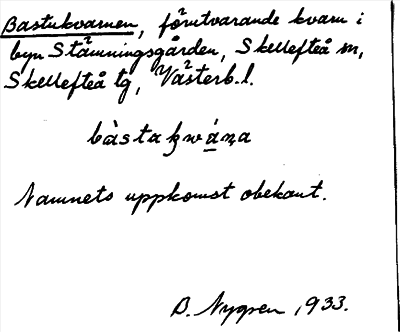 Bastukvarnen, förutvarande kvarn i
byn Stämningsgården, Skellefteå sn,
Skellefteå tg, Västerb. l.
bàstakwána
Namnets uppkomst obekant.
B. Nygren, 1933.